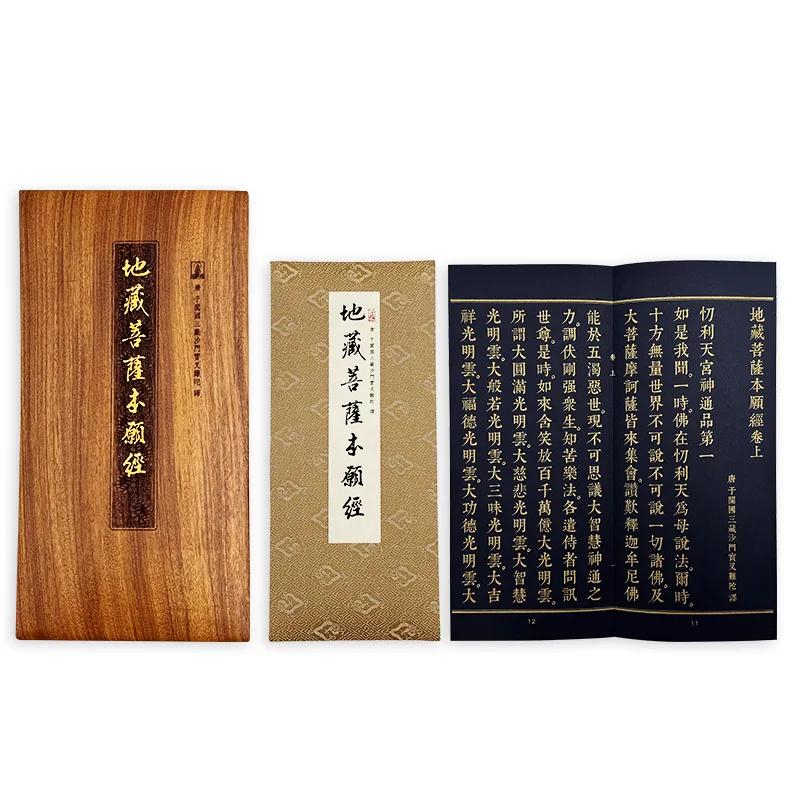 地藏菩薩本願經
唐 于闐國三藏沙門實叉難陀 譯
地藏菩薩本願經
唐 于闐國三藏沙門實叉難陀 譯
地藏菩薩本願經卷上
唐 于闐國三藏沙門實叉難陀 譯
忉利天宮神通品第一
如是我聞。一時。佛在忉利天。為母說法。爾時。
十方無量世界。不可說不可說一切諸佛。及
大菩薩摩訶薩。皆來集會。讚歎釋迦牟尼佛
11
卷上
能於五濁惡世。現不可思議大智慧神通之
力。調伏剛强衆生。知苦樂法。各遣侍者。問訊
世尊。是時。如來含笑。放百千萬億大光明雲。
所謂大圓滿光明雲。大慈悲光明雲。大智慧
光明雲。大般若光明雲。大三昧光明雲。大吉
祥光明雲。大福德光明雲。大功德光明雲。大
12